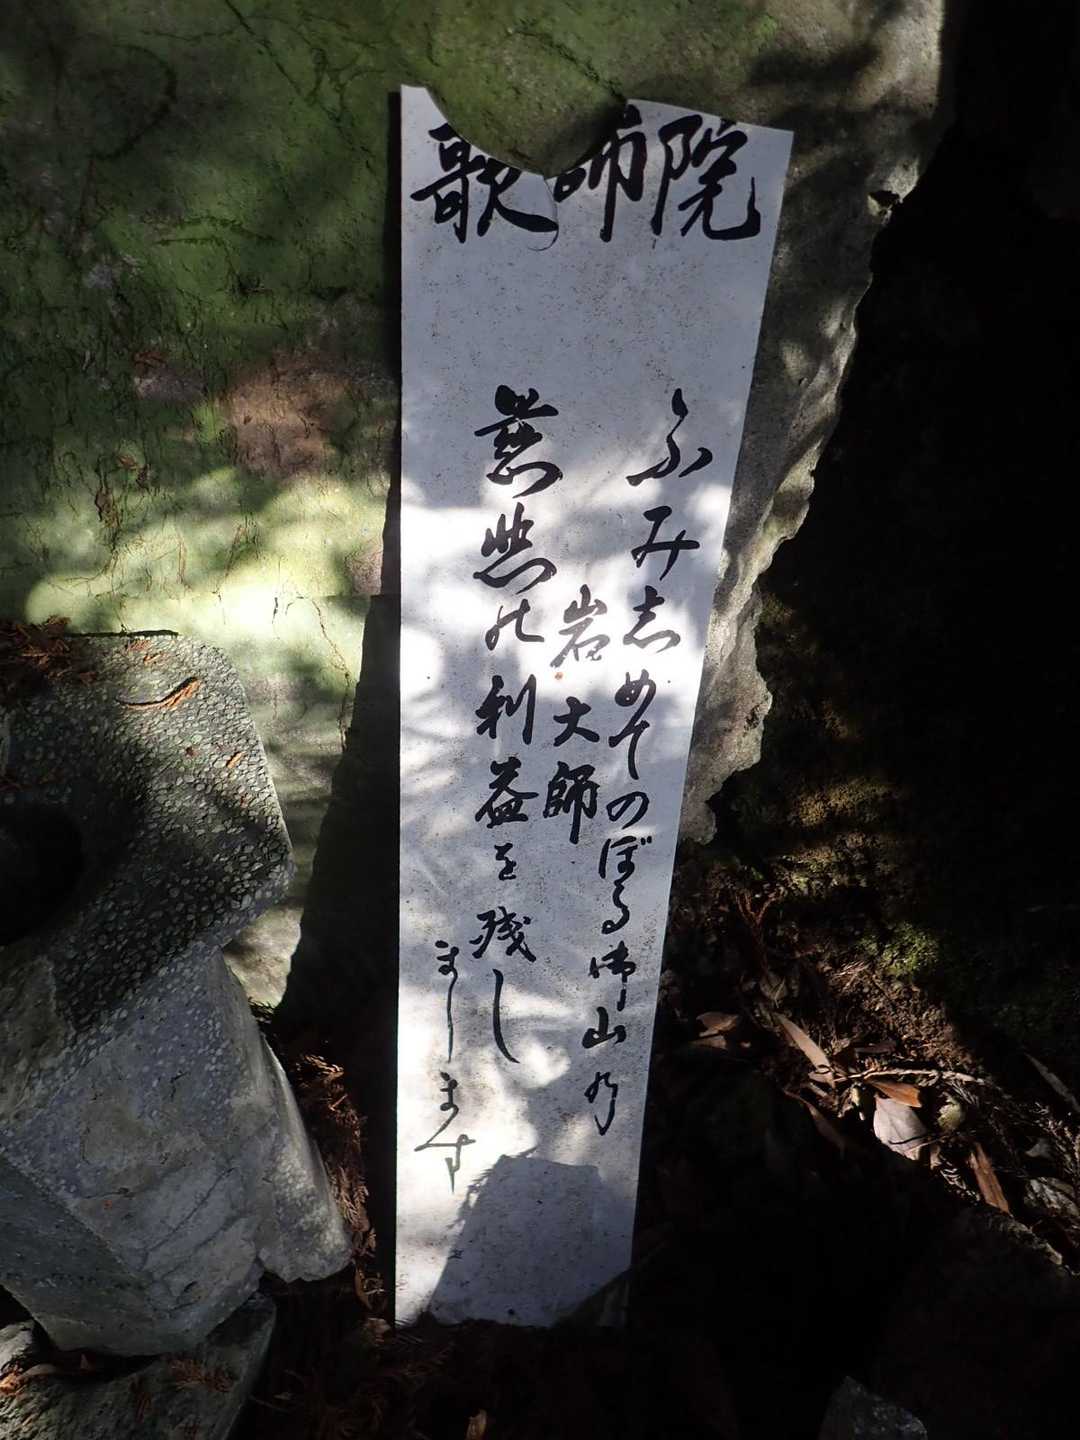 歌師院
ふみ志めてのぼる御山乃
岩大師
慈悲の利益を残し
まします